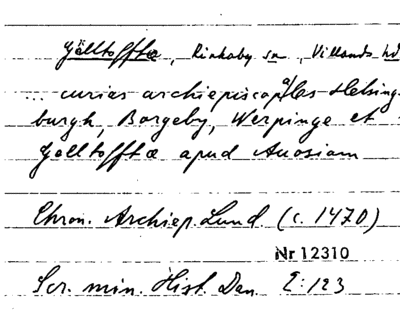 Gälltofftæ, Rinkaby sn, Villands hd
... curias archiepiscopales Helsing-
burgh, Borgeby, Werpinge et
Gälltofftæ apud Auosiam
Chron. Archiep. Lund. (c. 1470)
Nr 12310
Scr. min. Hist. Dan. 2:123